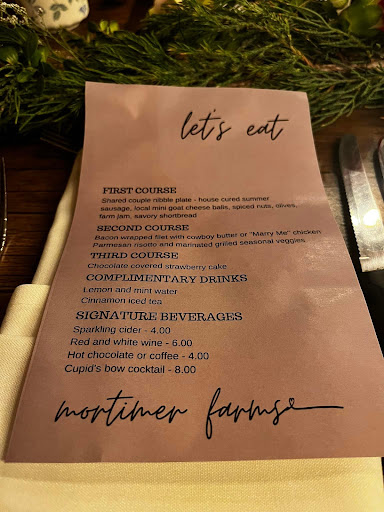 let's eat
FIRST COURSE
Shared couple nibble plate - house cured summer
sausage, local mini goat cheese balls, spiced nuts, olives,
farm jam, savory shortbread
SECOND COURSE
Bacon wrapped filet with cowboy butter or "Marry Me" chicken
Parmesan risotto and marinated grilled seasonal veggies
THIRD COURSE
Chocolate covered strawberry cake
COMPLIMENTARY DRINKS
Lemon and mint water
Cinnamon iced tea
SIGNATURE BEVERAGES
Sparkling cider - 4.00
Red and white wine - 6.00
Hot chocolate or coffee - 4.00
Cupid's bow cocktail - 8.00
mortimer farms